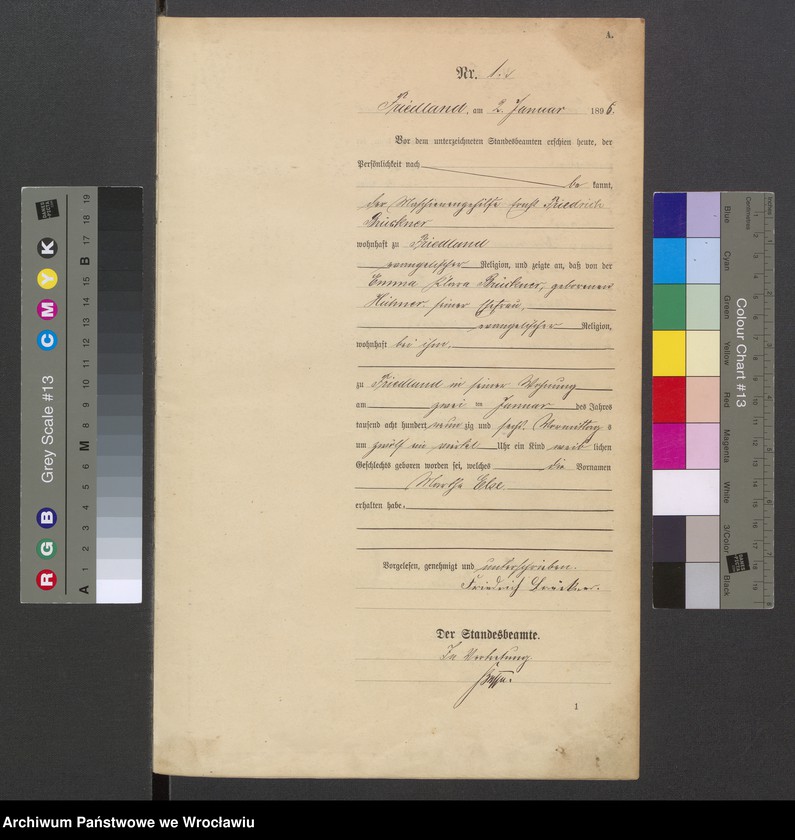 A.
Nr. 1.
Friedland, am 2. Januar 1896.
Vor dem unterzeichneten Standesbeamten erschien heute, der
Persönlichkeit nach
be kannt,
der Maschinengehilfe Ernst Friedrich
Brückner
wohnhaft zu Friedland
evangelischer Religion, und zeigte an, daß von der
Emma Klara Brückner, geborenen
Hübner, seiner Ehefrau,
evangelischer Religion,
wohnhaft bei ihm,
zu Friedland in seiner Wohnung
am zwei ten Januar des Jahres
tausend acht hundert neun zig und sechs, Vormittag s
um zwölf ein viertel Uhr ein Kind weib lichen
Geschlechts geboren worden sei, welches die Vornamen
Martha Else
erhalten habe.
Vorgelesen, genehmigt und unterschrieben.
Friedrich Brückner.
Der Standesbeamte.
In Vertretung
1
Grey Scale #13
A 1 2 3 4 5 6 M 8 9 10 11 12 13 14 15 B 17 18 19
R G B C M Y K
Colour Chart #13
Blue
Cyan
Green
Yellow
Red
Magenta
White
3/Color
Black
Centimetres
Inches
Archiwum Państwowe we Wrocławiu